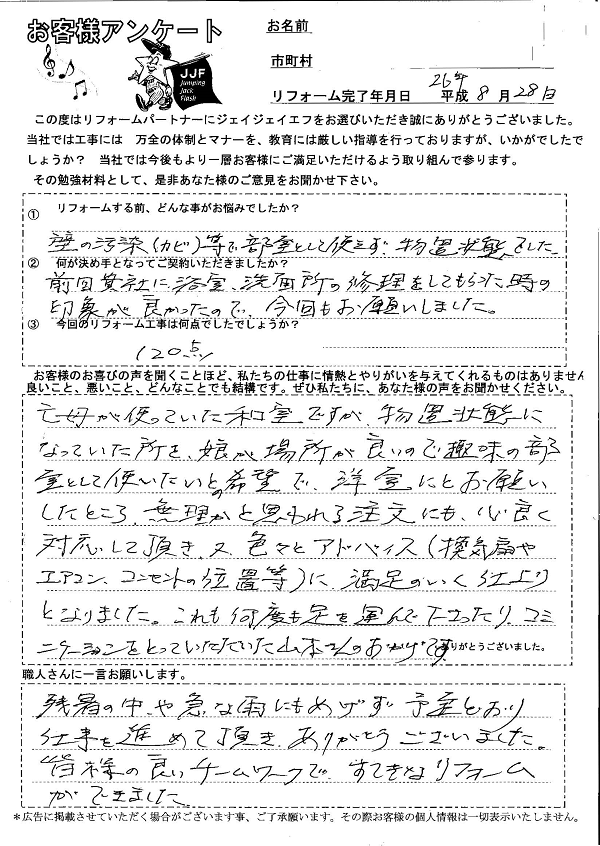 お客様アンケート
JJF
Jumping
Jack
Flash
お名前
市町村
リフォーム完了年月日 26年 平成 8 月 28日
この度はリフォームパートナーにジェイジェイエフをお選びいただき誠にありがとうございました。
当社では工事には 万全の体制とマナーを、教育には厳しい指導を行っておりますが、いかがでしたで
しょうか? 当社では今後もより一層お客様にご満足いただけるよう取り組んで参ります。
その勉強材料として、是非あなた様のご意見をお聞かせ下さい。
① リフォームする前、どんな事がお悩みでしたか?
壁の汚染(カビ)等で部室として使えず、物置状態でした
② 何が決め手となってご契約いただきましたか?
前回貴社に浴室、洗面所の修理をしてもらった時の
印象が良かったので、今回もお願いしました。
③ 今回のリフォーム工事は何点でしたでしょうか?
120点
お客様のお喜びの声を聞くことほど、私たちの仕事に情熱とやりがいを与えてくれるものはありません
良いこと、悪いこと、どんなことでも結構です。ぜひ私たちに、あなた様の声をお聞かせください。
亡母が使っていた和室ですが、物置状態に
なっていた所を、娘が場所が良いので趣味の部
室として使いたいとの希望で、洋室にとお願い
したところ、無理かと思われる注文にも、心良く
対応して頂き、又、色々とアドバイス(換気扇や
エアコン、コンセントの位置等)に、満足のいく仕上り
となりました。これも何度も足を運んで下さったり、コミ
ニケーションをとっていただいた山本さんのおかげです ありがとうございました。
職人さんに一言お願いします。
残暑の中や急な雨にもめげず予定どおり
仕事を進めて頂き、ありがとうございました。
皆様の良いチームワークで、すてきなリフォーム
ができました
*広告に掲載させていただく場合がございます事、ご了承願います。その際お客様の個人情報は一切表示いたしません。